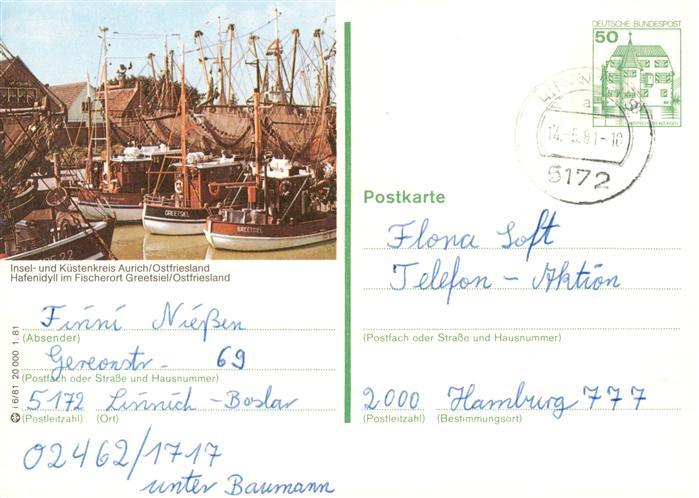 DEUTSCHE BUNDESPOST
50
LINNICH
a
14.-5.81-10
5172
GREETSIEL
GREETSIEL
Insel- und Küstenkreis Aurich/Ostfriesland
Hafenidyll im Fischerort Greetsiel/Ostfriesland
Finni Nießen
(Absender)
Gereonstr. 69
(Postfach oder Straße und Hausnummer)
5172 Linnich-Boslar
(Postleitzahl) (Ort)
02462/1717
unter Baumann
i 6/81 20 000 1.81
Postkarte
Flora Soft
Telefon - Aktion
(Postfach oder Straße und Hausnummer)
2000 Hamburg 777
(Postleitzahl) (Bestimmungsort)